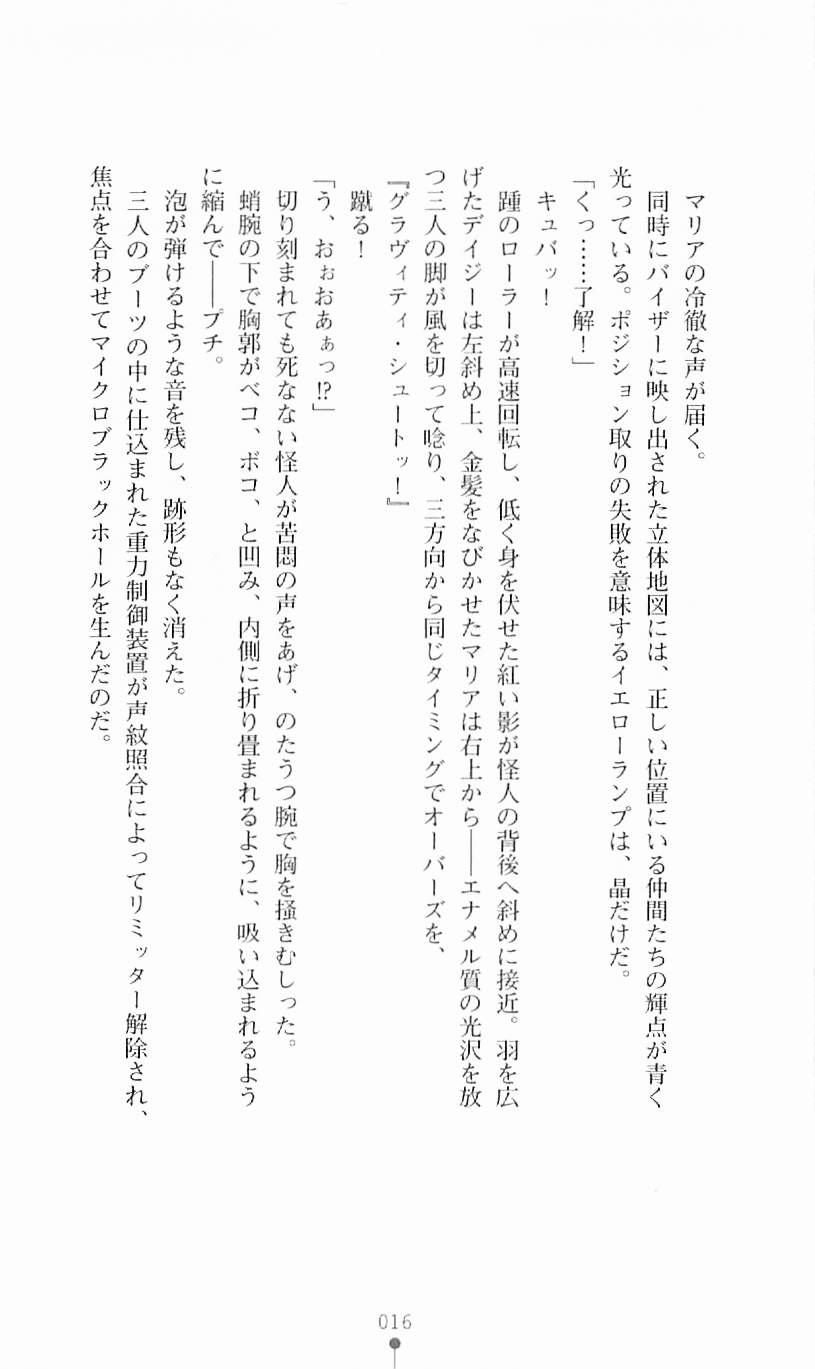 マリアの冷徹な声が届く。
同時にバイザーに映し出された立体地図には、正しい位置にいる仲間たちの輝点が青く
光っている。ポジション取りの失敗を意味するイエローランプは、晶だけだ。
「くっ……了解！」
キュバッ！
踵のローラーが高速回転し、低く身を伏せた紅い影が怪人の背後へ斜めに接近。羽を広
げたデイジーは左斜め上、金髪をなびかせたマリアは右上から――エナメル質の光沢を放
つ三人の脚が風を切って唸り、三方向から同じタイミングでオーバーズを、
『グラヴィティ・シュートッ！』
蹴る！
「う、おぉおあぁっ!?」
切り刻まれても死なない怪人が苦悶の声をあげ、のたうつ腕で胸を掻きむしった。
蛸腕の下で胸郭がベコ、ボコ、と凹み、内側に折り畳まれるように、吸い込まれるよう
に縮んで――プチ。
泡が弾けるような音を残し、跡形もなく消えた。
三人のブーツの中に仕込まれた重力制御装置が声紋照合によってリミッター解除され、
焦点を合わせてマイクロブラックホールを生んだのだ。
016